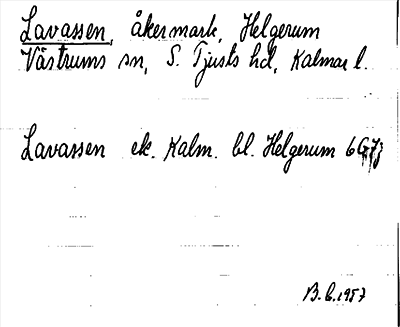 Lavassen, åkermark, Helgerum
Västrums sn, S. Tjusts hd, Kalmar l.
Lavassen ek. Kalm. bl. Helgerum 6G7j
B. L. 1957